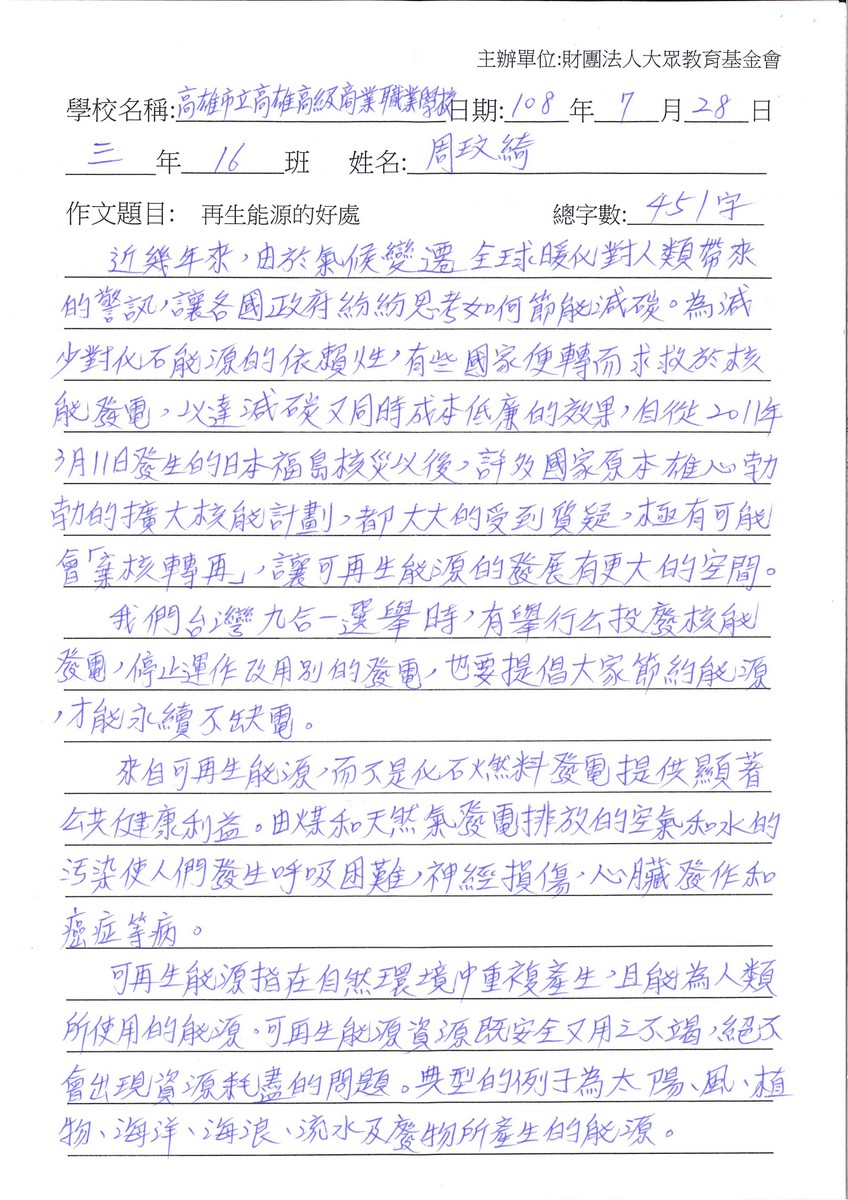 主辦單位:財團法人大眾教育基金會
學校名稱:高雄市立高雄高級商業職業學校日期:108年7月28日
三年16班 姓名:周玟綺
作文題目: 再生能源的好處 總字數:451字
近幾年來,由於氣候變遷 全球暖化對人類帶來
的警訊,讓各國政府紛紛思考如何節能減碳。為減
少對化石能源的依賴性,有些國家便轉而求救於核
能發電,以達減碳又同時成本低廉的效果,自從2011年
3月11日發生的日本福島核災以後,許多國家原本雄心勃
勃的擴大核能計劃,都大大的受到質疑,極有可能
會「棄核轉再」,讓可再生能源的發展有更大的空間。
我們台灣九合一選舉時,有舉行公投廢核能
發電,停止運作改用別的發電,也要提倡大家節約能源
,才能永續不缺電。
來自可再生能源,而不是化石燃料發電提供顯著
公共健康利益。由煤和天然氣發電排放的空氣和水的
污染使人們發生呼吸困難,神經損傷,心臟發作和
癌症等病。
可再生能源指在自然環境中重複產生,且能為人類
所使用的能源。可再生能源資源既安全又用之不竭,絕不
會出現資源耗盡的問題。典型的例子為太陽、風、植
物、海洋、海浪、流水及廢物所產生的能源。